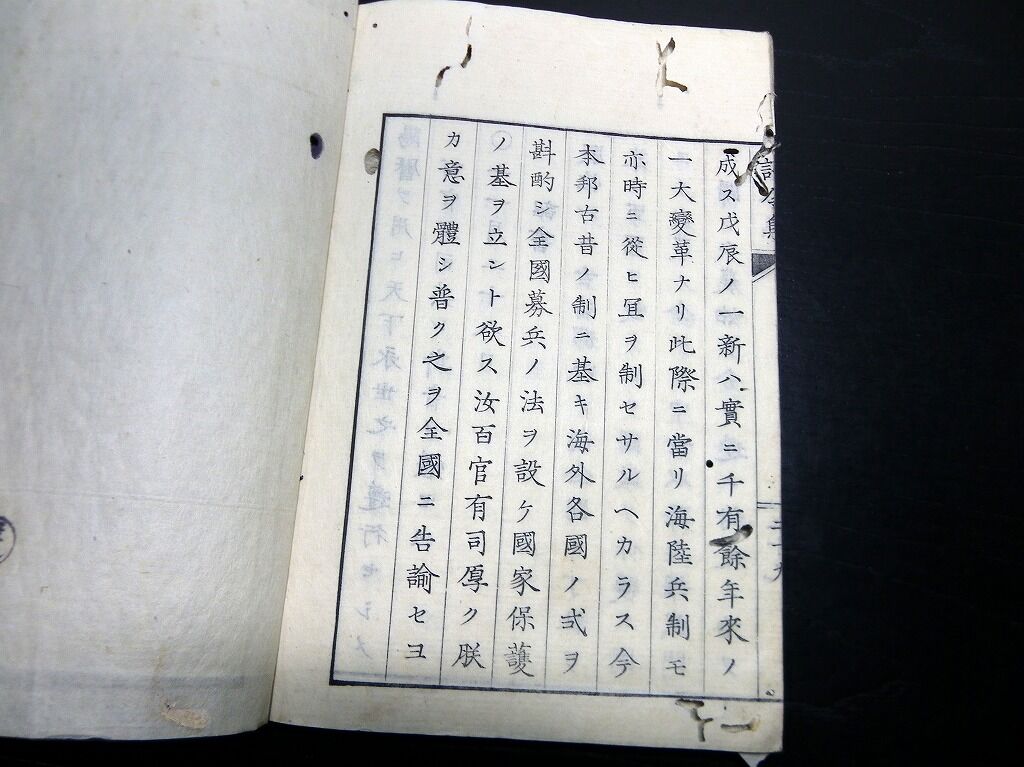 成ス戊辰ノ一新ハ實ニ千有餘年來ノ
一大變革ナリ此際ニ當リ海陸兵制モ
亦時ニ從ヒ冝ヲ制セサルヘカラス今
本邦古昔ノ制ニ基キ海外各國ノ式ヲ
斟酌シ全國募兵ノ法ヲ設ケ國家保護
ノ基ヲ立ント欲ス汝百官有司厚ク朕
カ意ヲ體シ普ク之ヲ全國ニ告諭セヨ